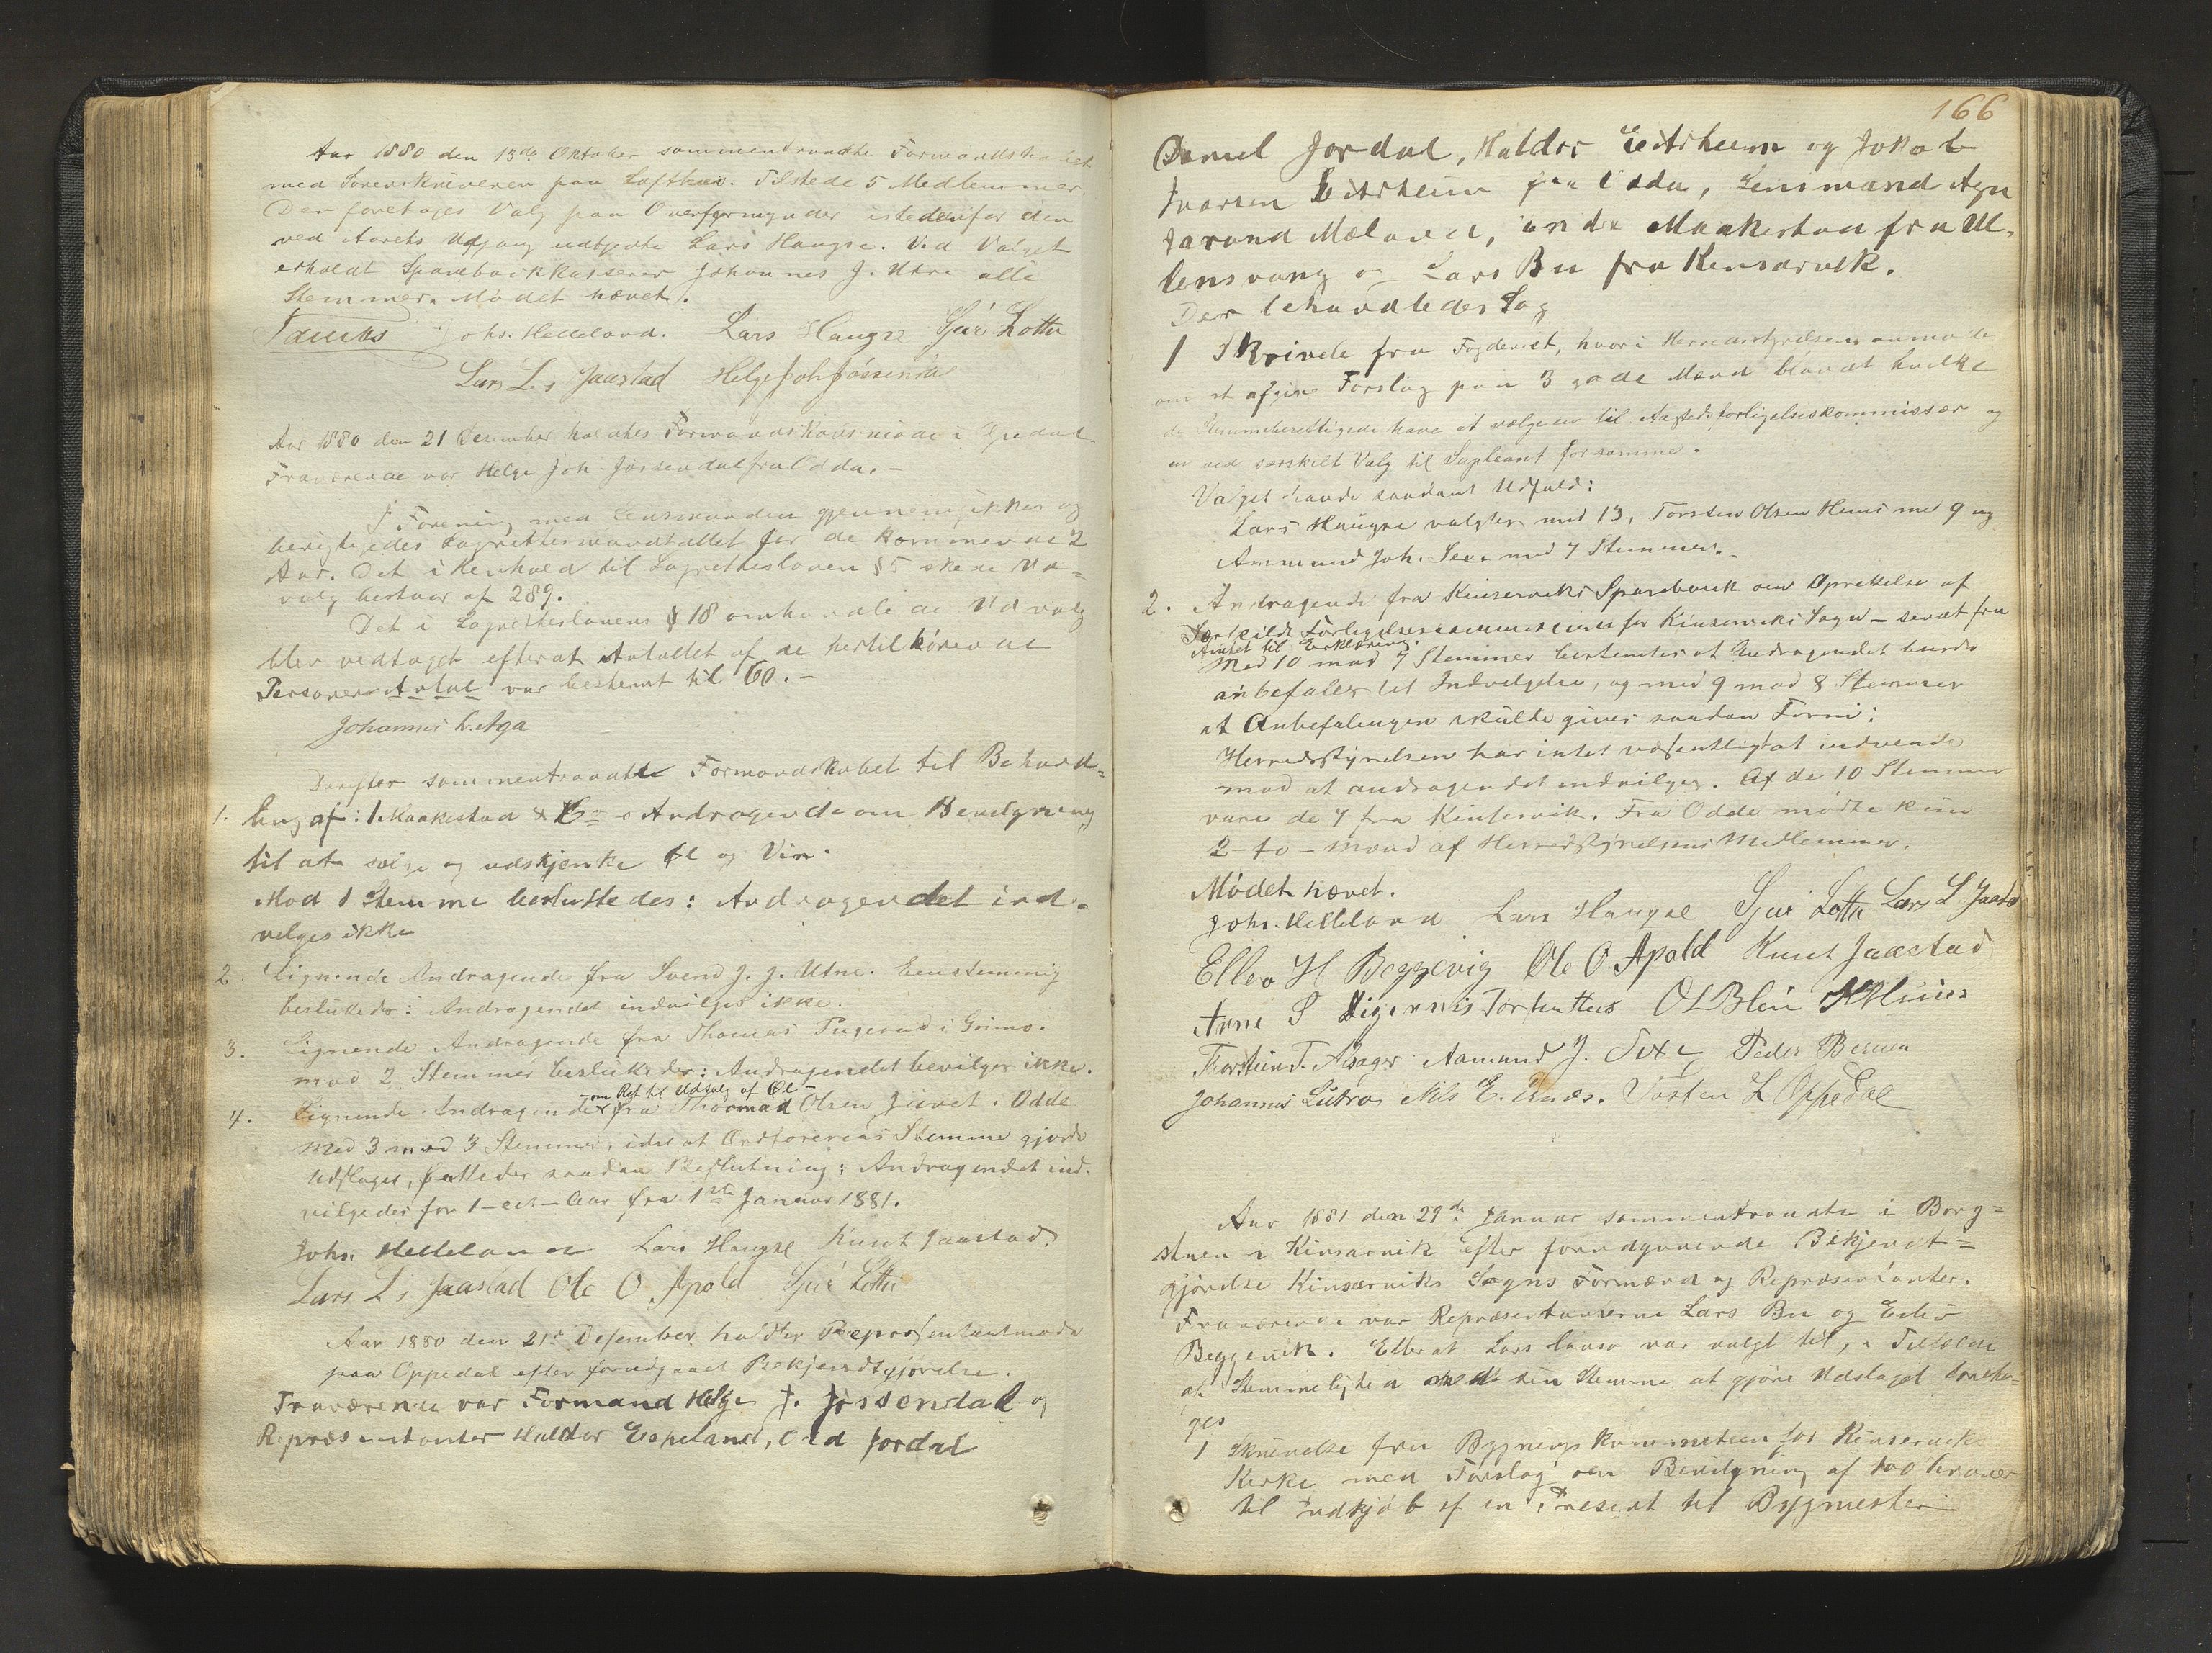 Aar 1880 den 13de Oktober sammentraadte Formandskabet
med Sorenskriveren paa Lofthus. Tilstede 5 Medlemmer.
Der foretoges Valg paa Overformynder istedenfor den
ved Aarets Udgang udtjente Lars Haugse. Ved Valget
erholdt Sparebankkasserer Johannes J. Utne alle
Stemmer. Mødet hævet.
Johs. Helleland. Lars Haugse Sjur Lotte
Lars L. Jaastad Helge Joh Jøssendal
Aar 1880 den 21 Desember holdtes Formandskabsmøde i Opedal
Fraværende var Helge Joh. Jøssendal fra Odda. -
I Forening med Lensmanden gjennemgikkes og
berigtigedes Lagrettesmandtallet for de kommende 2
Aar. Det i Henhold til Lagretteloven § 5 skede Ud=
valg bestaar af 289.
Det i Lagretteslovens § 18 omhandlede Udvalg
blev vedtaget efterat Antallet af de hertil hörende
Personers Antal var bestemt til 60. -
Johannes L. Aga
Derefter sammentraadte Formandskabet til Behand=
1. ling af: 1 Maakestad & Co s Andragende om Bevilgning
til at sælge og udskjenke Øl og Vin.
Mod 1 Stemme besluttedes: Andragendet ind=
velges ikke
2. Lignende Andragende fra Svend J. J. Utne. Eenstemmig
beslutedes: Andragendet indvilges ikke.
3. Lignende Andragende fra Thomas i Grimo.
mod 2 Stemmer beslutedes: Andragendet bevilges ikke.
- om Ret til Udsalg af Øl -
4. Lignende Andragende fra Thormod Olsen Juvet. Odde
Med 3 mod 3 Stemmer, idet at Ordførerens Stemme gjorde
Udslaget, fattedes saadan Beslutning: Andragendet ind=
vilgedes for 1-et-Aar fra 1ste Januar 1881.
Johs. Helleland Lars Haugse Knut Jaastad.
Lars L. Jaastad Ole O. Apold Sjur Lotte
Aar 1880 den 21de Desember holdtes Repræsentantmøde
paa Oppedal efter forudgaaet Bekjendtgjørelse.
Fraværende var Formand Helge J. Jøssendal og
Repræsentanter Haldor Espeland, Odd Jordal
166
Daniel Jordal, Haldor Eitrheim og Jakob
Ivarsen Eitrheim fra Odda, Lensmand Aga
Jarand Mæland, Maakestad fra Ul=
lensvang og Lars Bu fra Kinsarvik.
Der behandledes Sag
1 Skrivelse fra Fogderiet, hvori Herredsstyrelsen anmodes
om at afgive Forslag paa 3 gode Mænd blandt hvilke
de Stemmeberettigede have at vælge en til Aastedsforligelseskommissær og
en ved særskilt Valg til Supleant for samme.
Valget havde saadant Udfald:
Lars Haugse valgtes med 13, Torsten Olsen Huus med 9 og
Ammund Joh. Sexe med 7 Stemmer. -
2. Andragende fra Kinserviks Sparebank om Oprettelse af
Særskildt Forligelseskommission for Kinserviks Sogn - sendt fra
Amtet til Erklæring.
Med 10 mod 7 Stemmer bestemtes at Andragendet burde
anbefales til Indvilgelse, og med 9 mod 8 Stemmer
at Anbefalingen skulde gives saadan Form:
Herredsstyrelsen har intet væsentligt at indvende
mod at andragendet indvilges. Af de 10 Stemmer
vare de 7 fra Kinservik. Fra Odde mødte kun
2-to-mænd af Herredsstyrelsens Medlemmer.
Mødet hævet.
Johs. Helleland Lars Haugse Sjur Lotte Lars L. Jaastad
Ellev H Beggevig Ole O. Apold Knut Jaastad
Arne S Digernes Tor Huttus
Torstein T. Alsager Aamund J. Sexe Peder
Johannes Lutro Nils E. Rnæs. Tosten L Oppedal
Aar 1881 den 29de Januar sammentraadte i Borg=
stuen i Kinsarvik efter forudgaaende Bekjendt=
gjørelse Kinsarviks Sogns Formænd og Repræsentanter.
Fraværende var Repræsentanterne Lars Bu og Ellev
Beggevik. Efterat Lars var valgt til, i Tilfælde
af Stemmelighed med sin Stemme at gjøre Udslaget foreto=
ges
1 Skrivelse fra Bygningskommiteen for Kinserviks
Kirke med Forslag om Bevilgning af 100 kroner
til Indkjøb af en Present til Bygmester